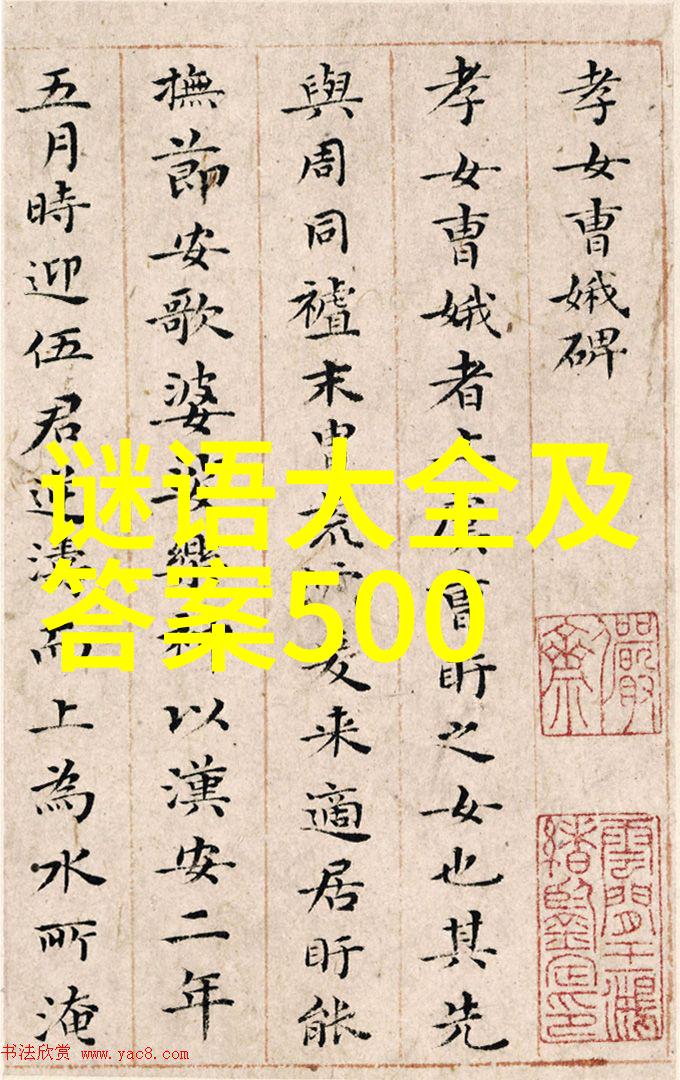 孝女曹娥碑
孝女曹娥者上虞曹盱之女也其先
與周同禮末胄荒而爰来適居盱能
撫節安歌婆娑樂神以漢安二年
五月時迎伍君逆濤而上為水所淹
谜语大全及
答案500
书法欣赏 www.yac8.com